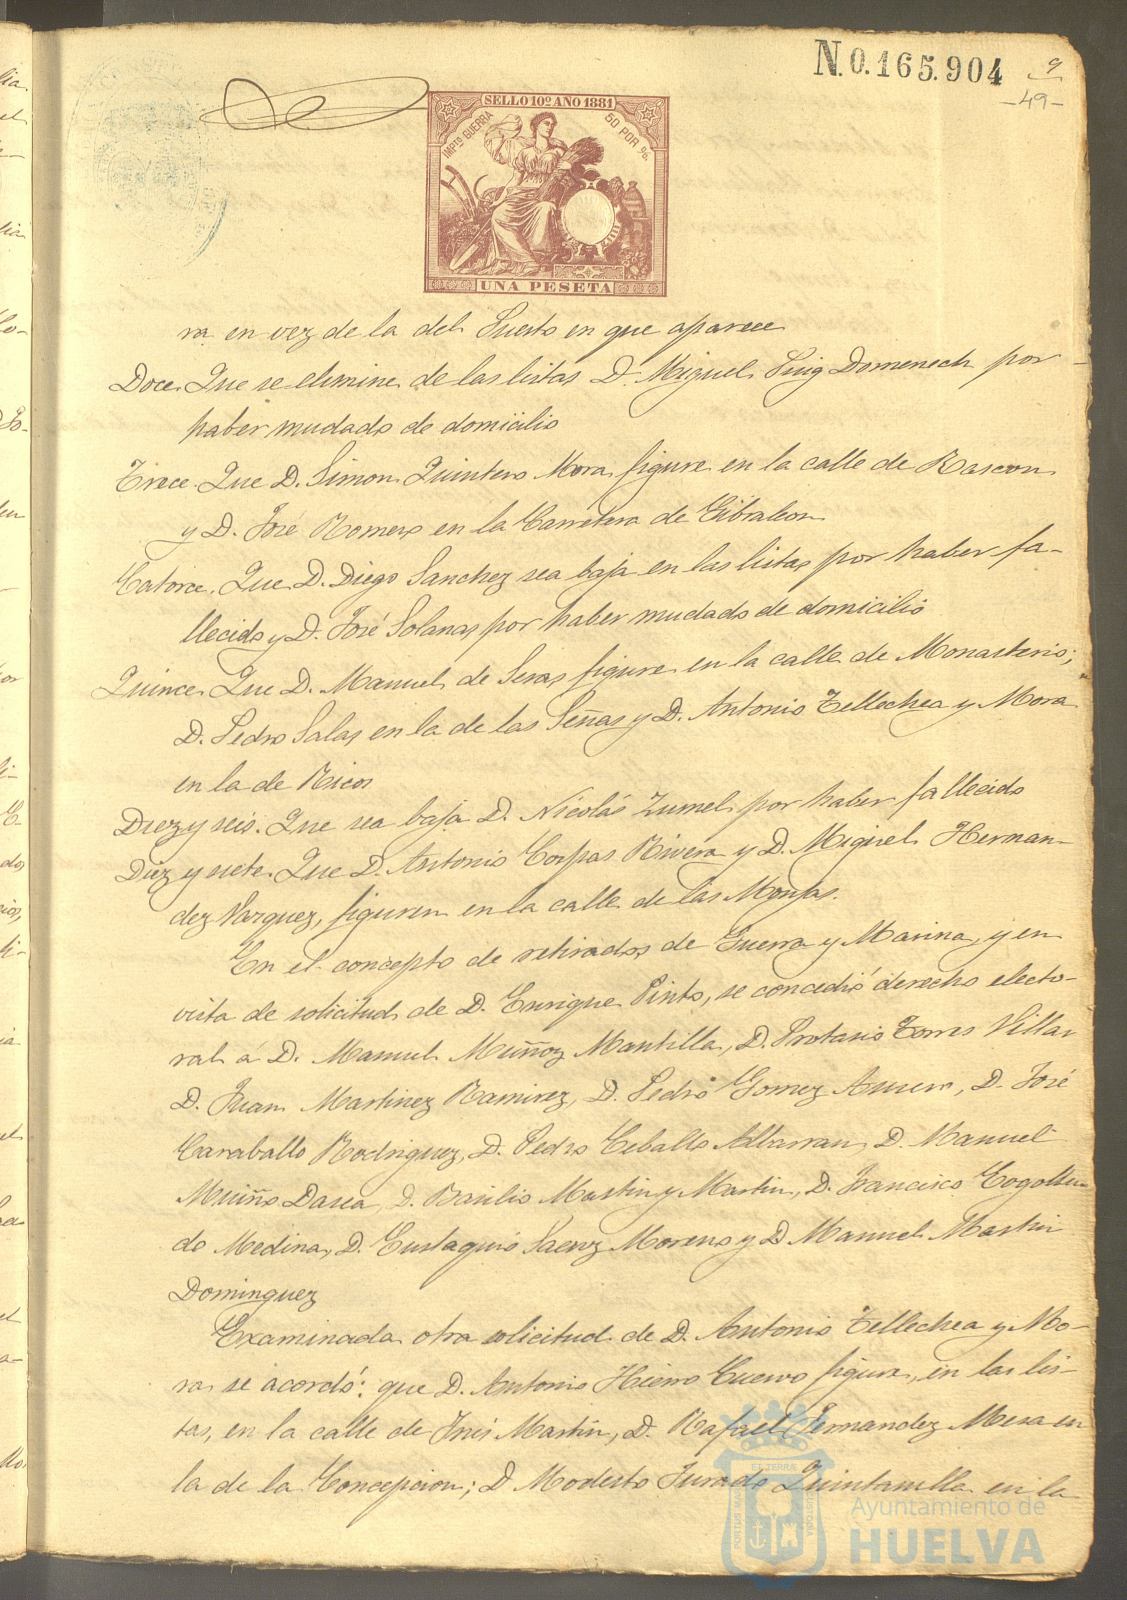 N.0.165.904
9
-49-
SELLO 10º AÑO 1881
IMPTO GUERRA
50 POR %
UNA PESETA
ra en vez de la del Puerto en que aparece
Doce. Que se elimine de las listas D. Miguel Puig Domenech por
haber mudado de domicilio
Trece. Que D. Simon Quintero Mora figure en la calle de Rascon
y D. José Romero en la Carretera de Gibraleon
Catorce. Que D. Diego Sanchez sea baja en las listas por haber fa-
llecido y D. José Solanas por haber mudado de domicilio
Quince. Que D. Manuel de Seras figure en la calle de Monasterio;
D. Pedro Salas en la de las Señas y D. Antonio Tellechea y Mora
en la de Ricos
Diez y seis. Que sea baja D. Nicolás Zumel por haber fallecido
Diez y siete. Que D. Antonio Corpas Rivera y D. Miguel Hernan-
dez Vazquez, figuren en la calle de las Monjas.
En el concepto de retirados de Guerra y Marina, y en
vista de solicitud de D. Enrique Pinto, se concedió derecho electo-
ral á D. Manuel Muñoz Mantilla, D. Protasio Torres Villar
D. Juan Martinez Ramirez, D. Pedro Gomez D. José
Caraballo Rodriguez, D. Pedro Ceballo Albarran, D. Manuel
D. Basilio Martin y Martin, D. Francisco Cogollu-
do Medina, D. Eustaquio Saenz Moreno y D Manuel Martin
Dominguez
Examinada otra solicitud de D. Antonio Tellechea y Mo-
ra se acordó: que D. Antonio Hierro Cuervo figure, en las lis-
tas, en la calle de Inés Martin, D. Rafael Fernandez Mesa en
la de la Concepcion; D Modesto Jurado Quintanilla en la
Ayuntamiento de
HUELVA